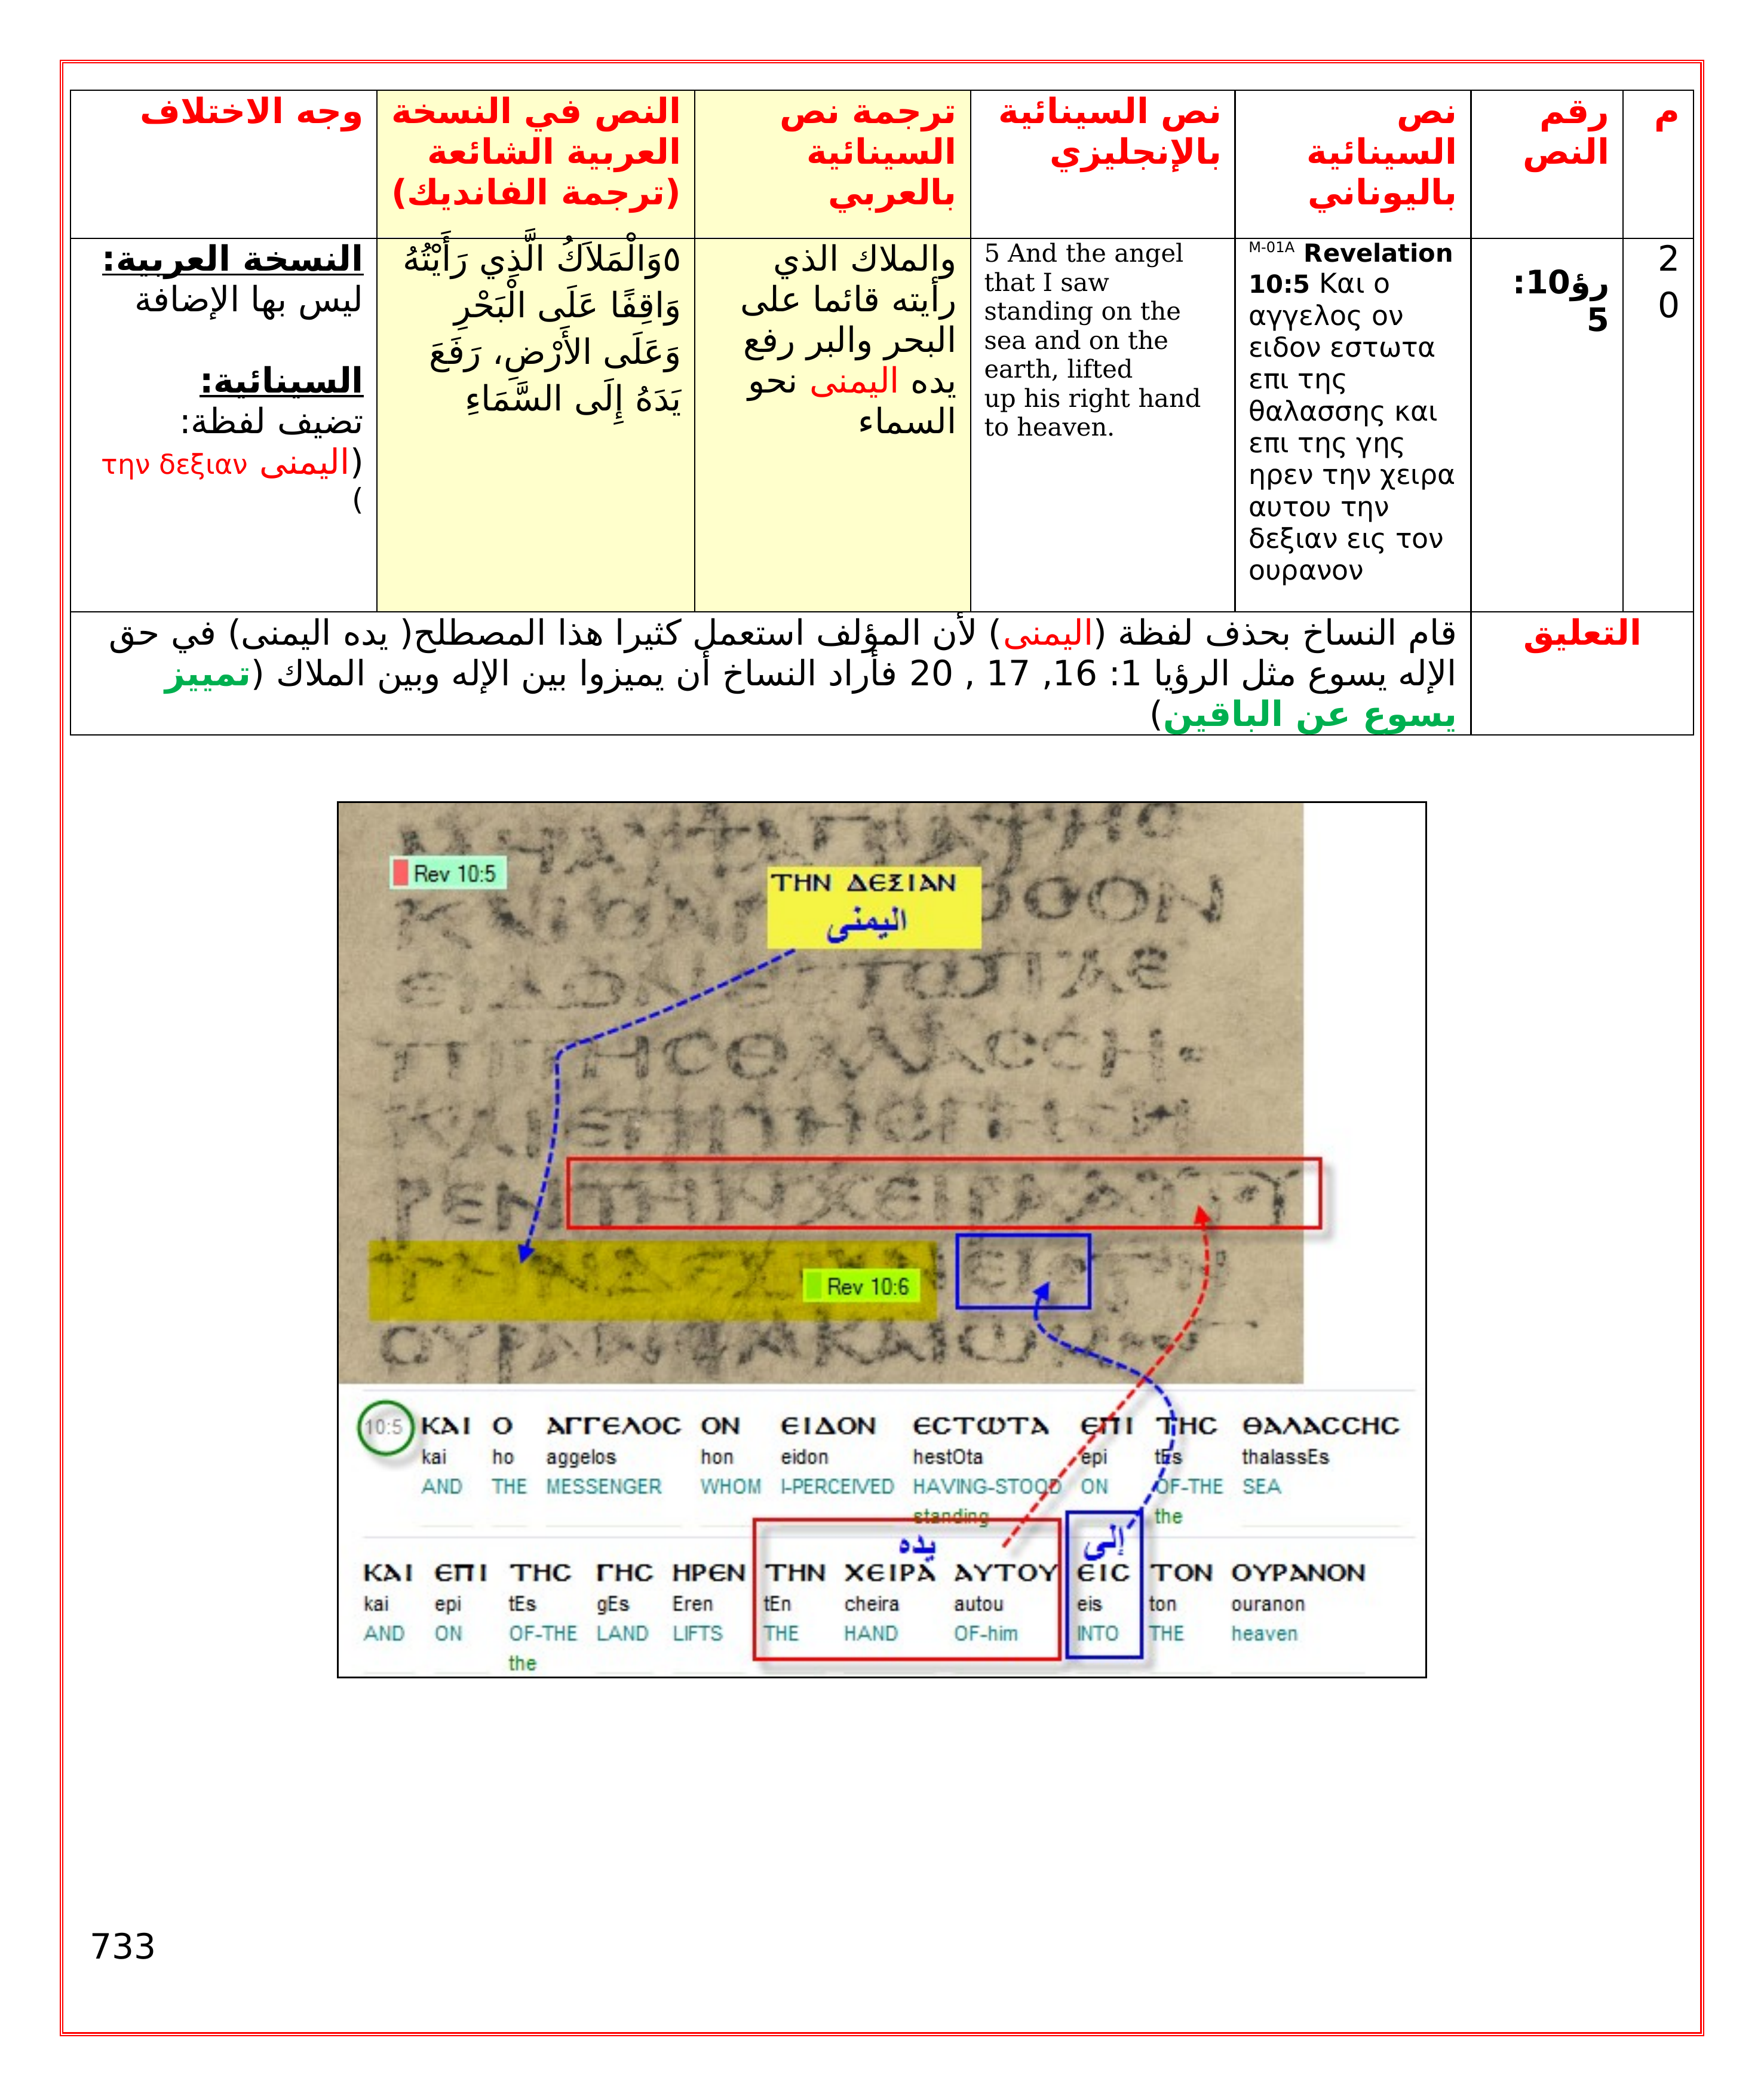 م
رقم
النص
نص
السينائية
باليوناني
نص السينائية
بالإنجليزي
ترجمة نص
السينائية
بالعربي
النص في النسخة
العربية الشائعة
(ترجمة الفانديك)
وجه الاختلاف
2
0
رؤ10:
5
M-01A Revelation
10:5 Και ο
αγγελος ον
ειδον εστωτα
επι της
θαλασσης και
επι της γης
ηρεν την χειρα
αυτου την
δεξιαν εις τον
ουρανον
5 And the angel
that I saw
standing on the
sea and on the
earth, lifted
up his right hand
to heaven.
والملاك الذي
رأيته قائما على
البحر والبر رفع
يده اليمنى نحو
السماء
٥وَالْمَلاَكُ الَّذِي رَأَيْتُهُ
وَاقِفًا عَلَى الْبَحْرِ
وَعَلَى الأَرْضِ، رَفَعَ
يَدَهُ إِلَى السَّمَاءِ
النسخة العربية:
ليس بها الإضافة
السينائية:
تضيف لفظة:
(اليمنى την δεξιαν
)
التعليق
قام النساخ بحذف لفظة (اليمنى) لأن المؤلف استعمل كثيرا هذا المصطلح( يده اليمنى) في حق
الإله يسوع مثل الرؤيا 1: 16, 17 , 20 فأراد النساخ أن يميزوا بين الإله وبين الملاك (تمييز
يسوع عن الباقين)
Rev 10:5
ΤΗΝ ΔΕΞΙΑΝ
اليمنى
ΠΙΤΗСΘΑΛΑССΗ
ΚΑΙΕΠΙΤΗСΓΗСΗ
ΡΕΝΤΗΝΧΕΙΡΑΑΥΤΟΥ
Rev 10:6
10:5 ΚΑΙ Ο ΑΓΓΕΛΟС ΟΝ ΕΙΔΟΝ ΕСΤΩΤΑ ΕΠΙ ΤΗС ΘΑΛΑССΗС
kai ho aggelos hon eidon hestOta epi tEs thalassEs
AND THE MESSENGER WHOM I-PERCEIVED HAVING-STOOD ON OF-THE SEA
standing the
يده إلى
ΚΑΙ ΕΠΙ ΤΗС ΓΗС ΗΡΕΝ ΤΗΝ ΧΕΙΡΑ ΑΥΤΟΥ ΕΙС ΤΟΝ ΟΥΡΑΝΟΝ
kai epi tEs gEs Eren tEn cheira autou eis ton ouranon
AND ON OF-THE LAND LIFTS THE HAND OF-him INTO THE heaven
the
733